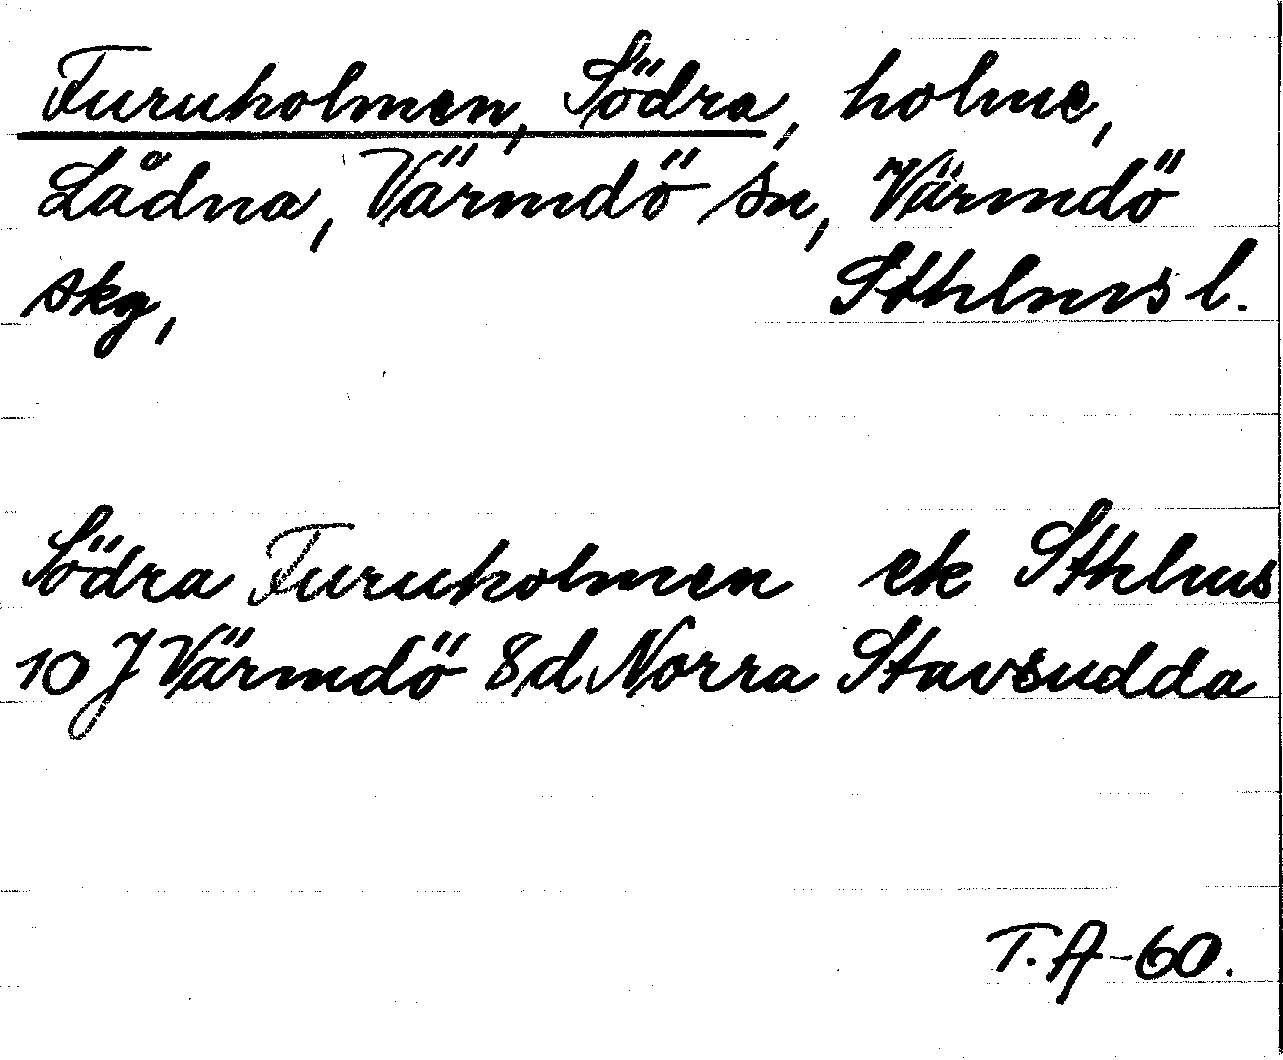 Furuholmen, Södra, holme,
Lådna, Värmdö sn, Värmdö
skg, Sthlms l.
Södra Furuholmen ek Sthlms
10 J Värmdö 8d Norra Stavsudda
T. A-60.